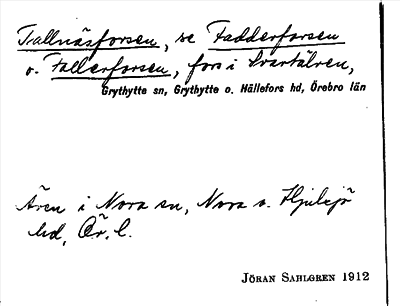 Trallnäsforsen, se Fadderforsen
o. Fallerforsen, fors i Svartälven,
Grythytte sn, Grythytte o. Hällefors hd, Örebro län
Åren i Nora sn, Nora o. Hjulsjö
hd, Ör. l.
JÖRAN SAHLGREN 1912